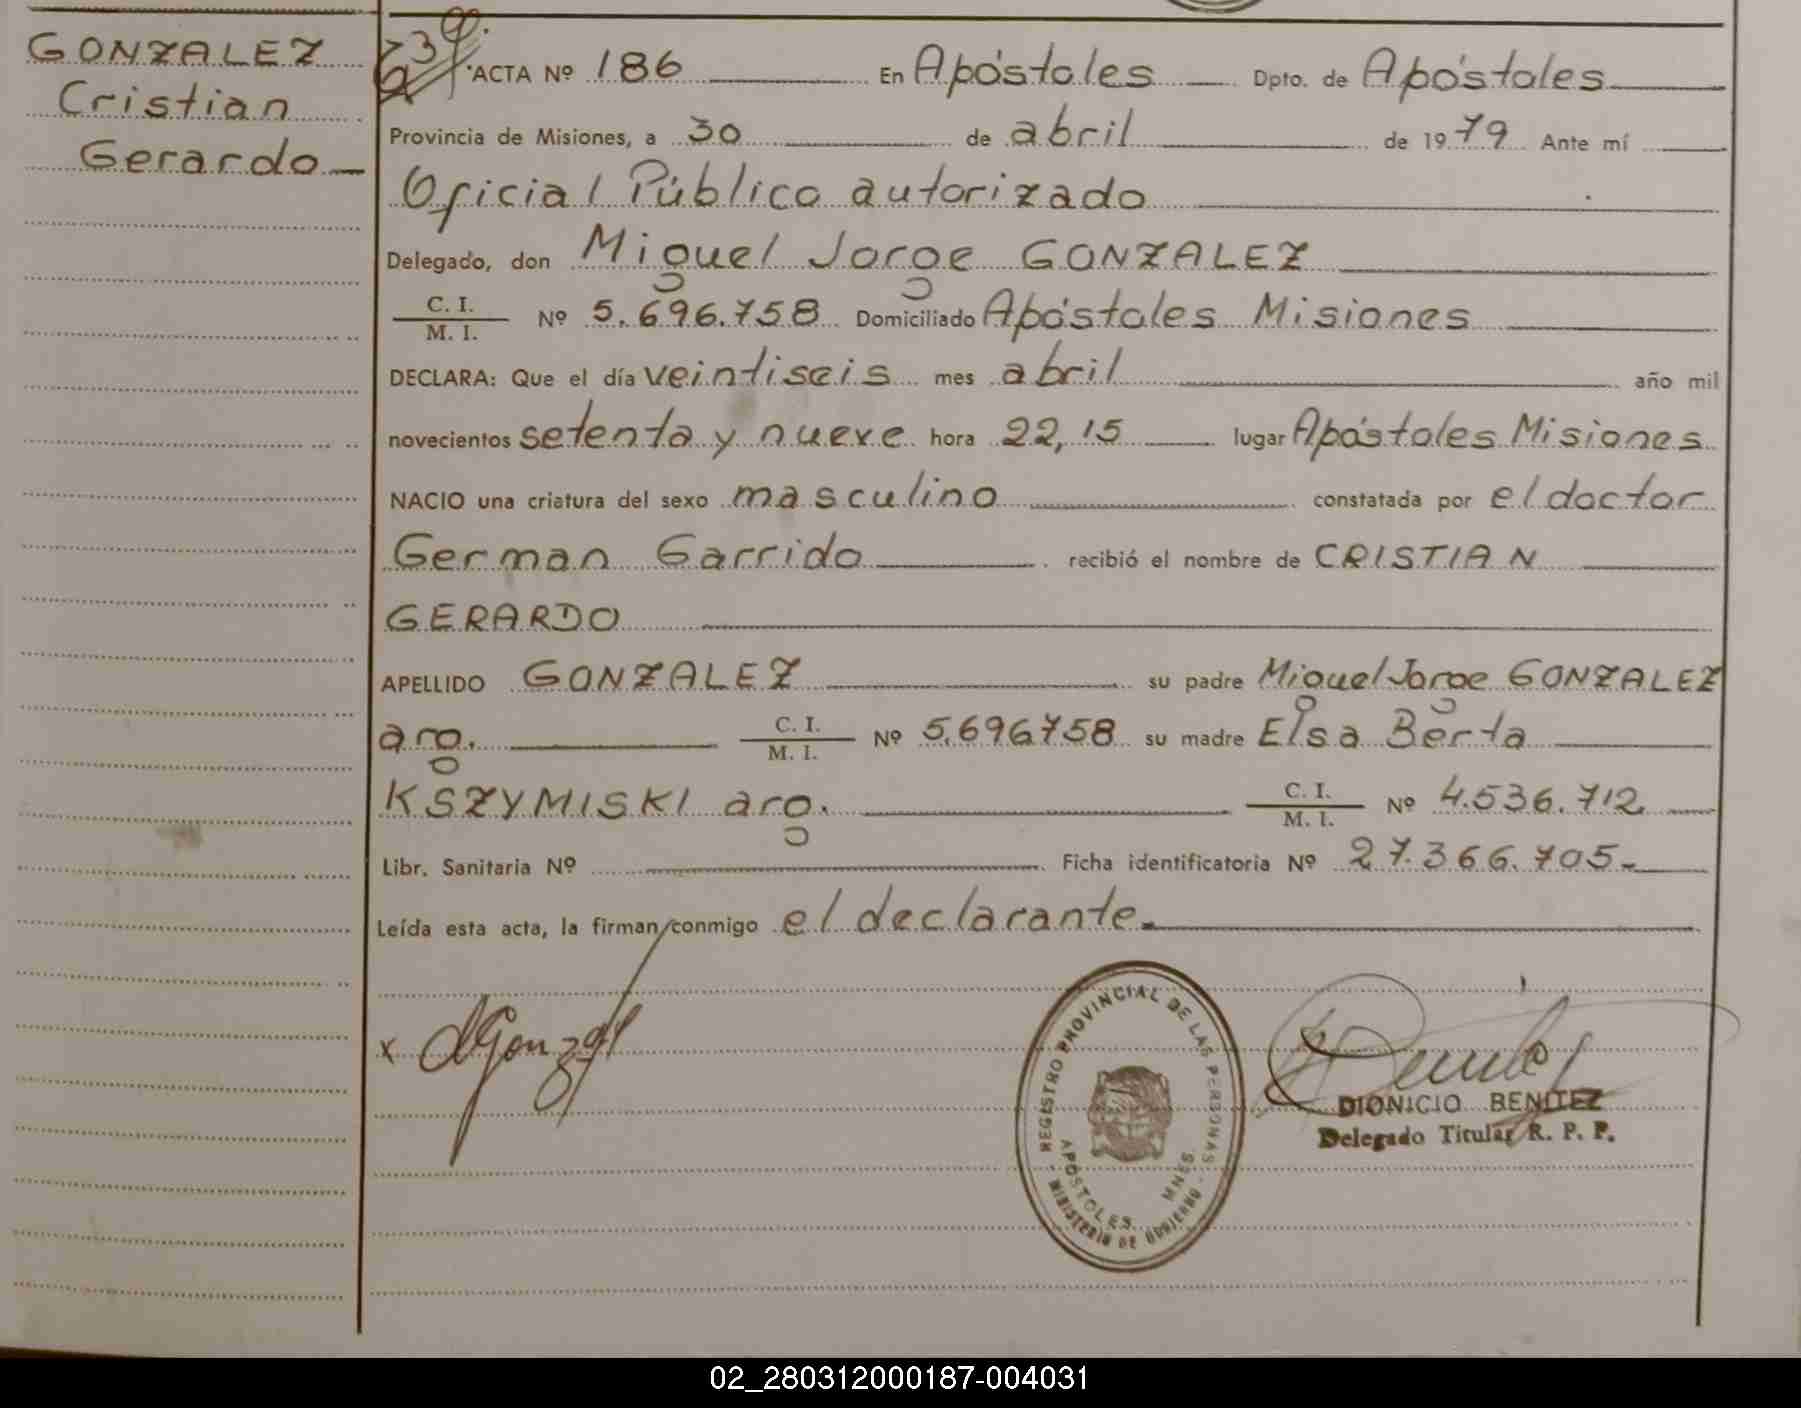 GONZALEZ
Cristian
Gerardo
239.
ACTA Nº 186 En Apóstoles Dpto. de Apóstoles
Provincia de Misiones, a 30 de abril de 1979 Ante mí
Oficial Público autorizado
Delegado, don Miguel Jorge GONZALEZ
C. I.
M. I.
Nº 5.696.758 Domiciliado Apóstoles Misiones
DECLARA: Que el día veintiseis mes abril año mil
novecientos setenta y nueve hora 22,15 lugar Apóstoles Misiones
NACIO una criatura del sexo masculino constatada por el doctor
German Garrido recibió el nombre de CRISTIAN
GERARDO
APELLIDO GONZALEZ su padre Miguel Jorge GONZALEZ
arg. C. I. M. I. Nº 5.696758 su madre Elsa Berta
KSZYMISKI arg. C. I. M. I. Nº 4.536.712
Libr. Sanitaria Nº Ficha identificatoria Nº 27.366.705-
Leída esta acta, la firman conmigo el declarante.
x
REGISTRO PROVINCIAL DE LAS PERSONAS
APÓSTOLES MNES.
- MINISTERIO DE GOBIERNO -
DIONICIO BENITEZ
Delegado Titular R. P. P.
02_280312000187-004031